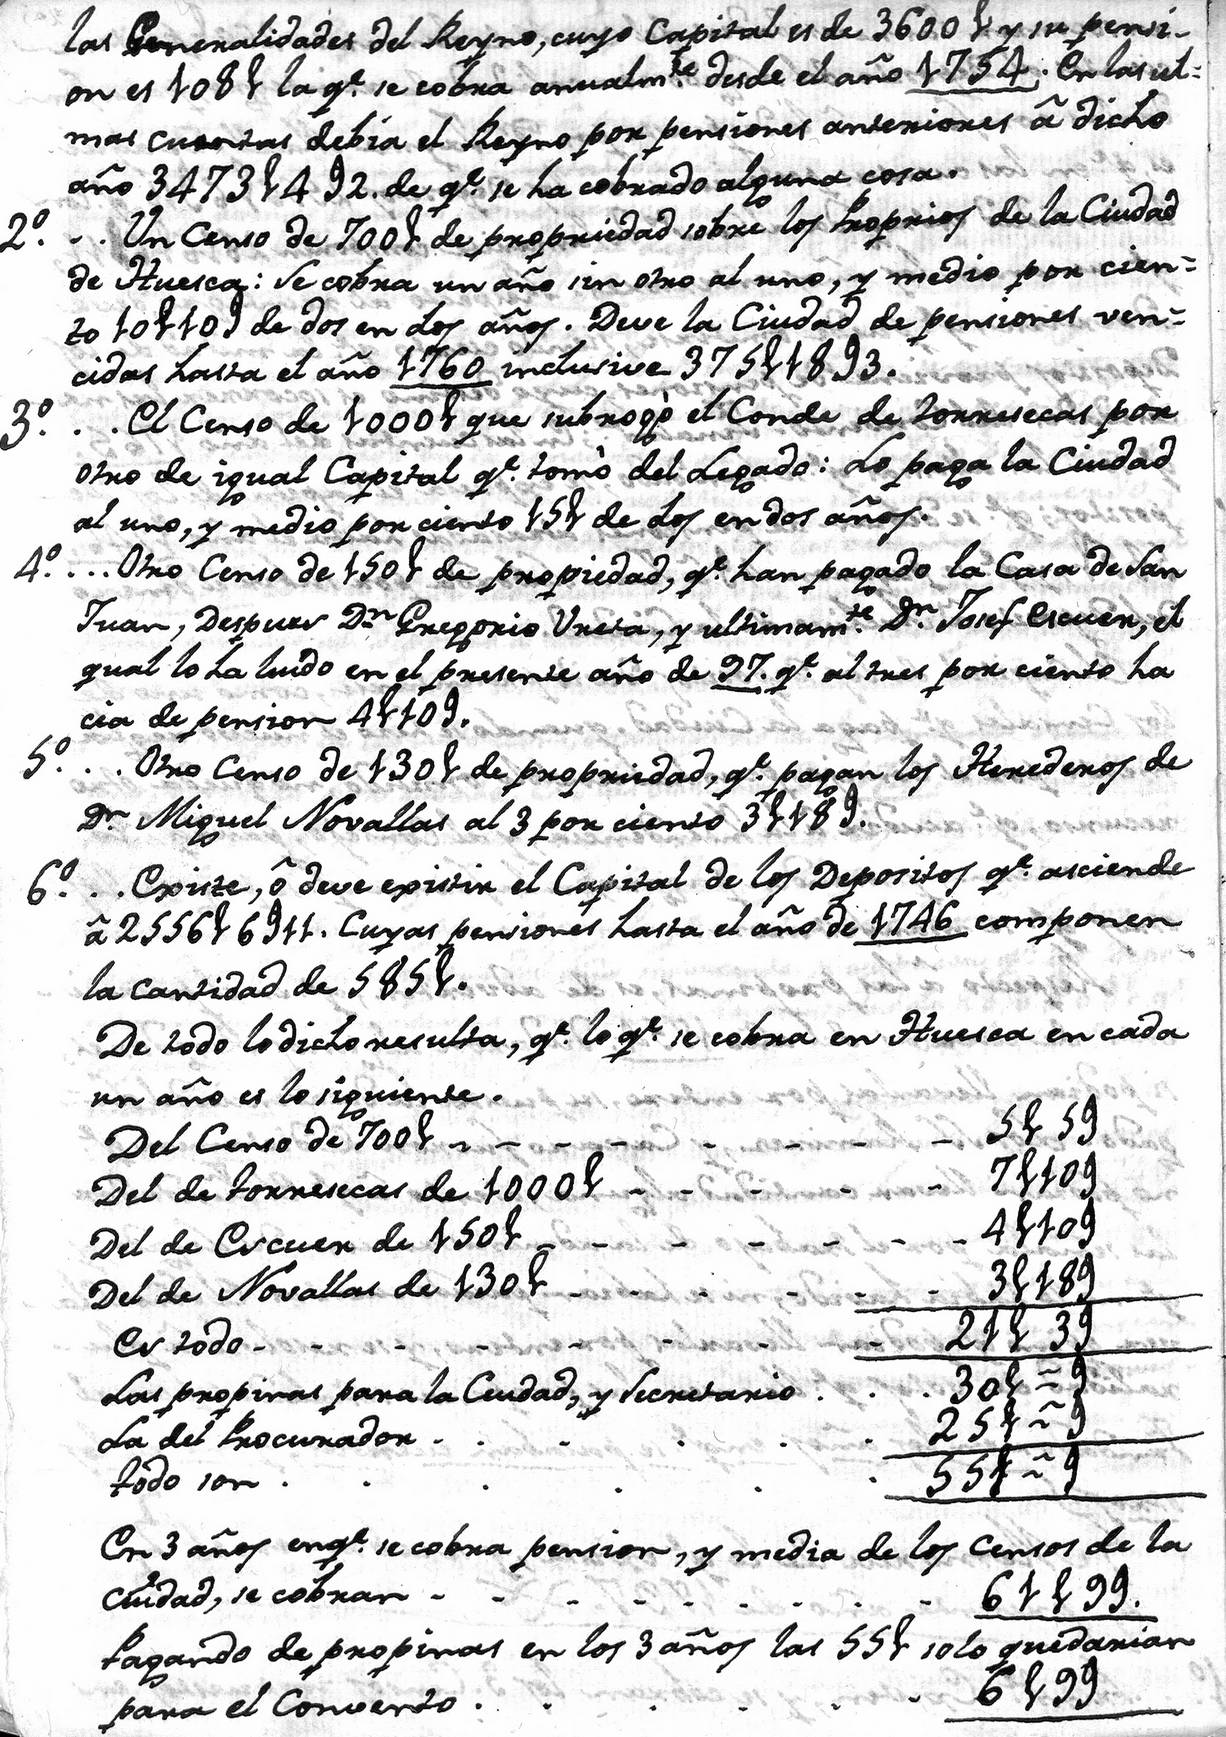 las Generalidades del Reyno, cuyo Capital es de 3600 ł y su pensi-
on es 108 ł la q.e se cobra anualm.te desde el año 1754. En las ul=
mas cuentas debia el Reyno por pensiones anteriores â dicho
año 3473 ł 4 9 2. de q.e se ha cobrado alguna cosa.
2.º . . Un Censo de 700 ł de propriedad sobre los Proprios de la Ciudad
de Huesca: Se cobra un año sin otro al uno, y medio por cien=
to 10 ł 10 9 de dos en dos años. Deve la Ciudad de pensiones ven=
cidas hasta el año 1760 inclusive 375 ł 18 9 3.
3.º . . El Censo de 1000 ł que subrogò el Conde de torresecas por
otro de igual Capital q.e tomò del Legado: Lo paga la Ciudad
al uno, y medio por ciento 15 ł de dos en dos años.
4.º . . . Otro Censo de 150 ł de propiedad, q.e han pagado la Casa de San
Juan, Despues Dn Gregorio Vreta, y ultimam.te Dn. Josef Escuer, el
qual lo ha luido en el presente año de 97. q.e al tres por ciento ha
cia de pension 4 ł 10 9.
5.º . . Otro Censo de 130 ł de propriedad, q.e pagan los Herederos de
Dn. Miguel Novallas al 3 por ciento 3 ł 18 9.
6.º . . Existe, ô deve existir el Capital de los Depositos q.e asciende
â 2556 ł 6 9 11. Cuyas pensiones hasta el año de 1746 componen
la cantidad de 585 ł.
De todo lo dicho resulta, q.e lo q.e se cobra en Huesca en cada
un año es lo siguiente.
Del Censo de 700 ł - - - - - - - 5 ł 5 9
Del de torresecas de 1000 ł - - - - - 7 ł 10 9
Del de Escuer de 150 ł - - - - - - - 4 ł 10 9
Del de Novallas de 130 ł - - - - - - 3 ł 18 9
Es todo - - - - - - - - 21 ł 3 9
Las propinas para la Ciudad, y Secretario . . . 30 ł ~ 9
La del Procurador . . . . . . 25 ł ~ 9
todo son . . . . . . . 55 ł ~ 9
En 3 años en q.e se cobra pension, y media de los censos de la
Ciudad, se cobran - - - - - - - - - 61 ł 9 9.
Pagando de propinas en los 3 años las 55 ł solo quedarian
para el Convento . . . . . . 6 ł 9 9